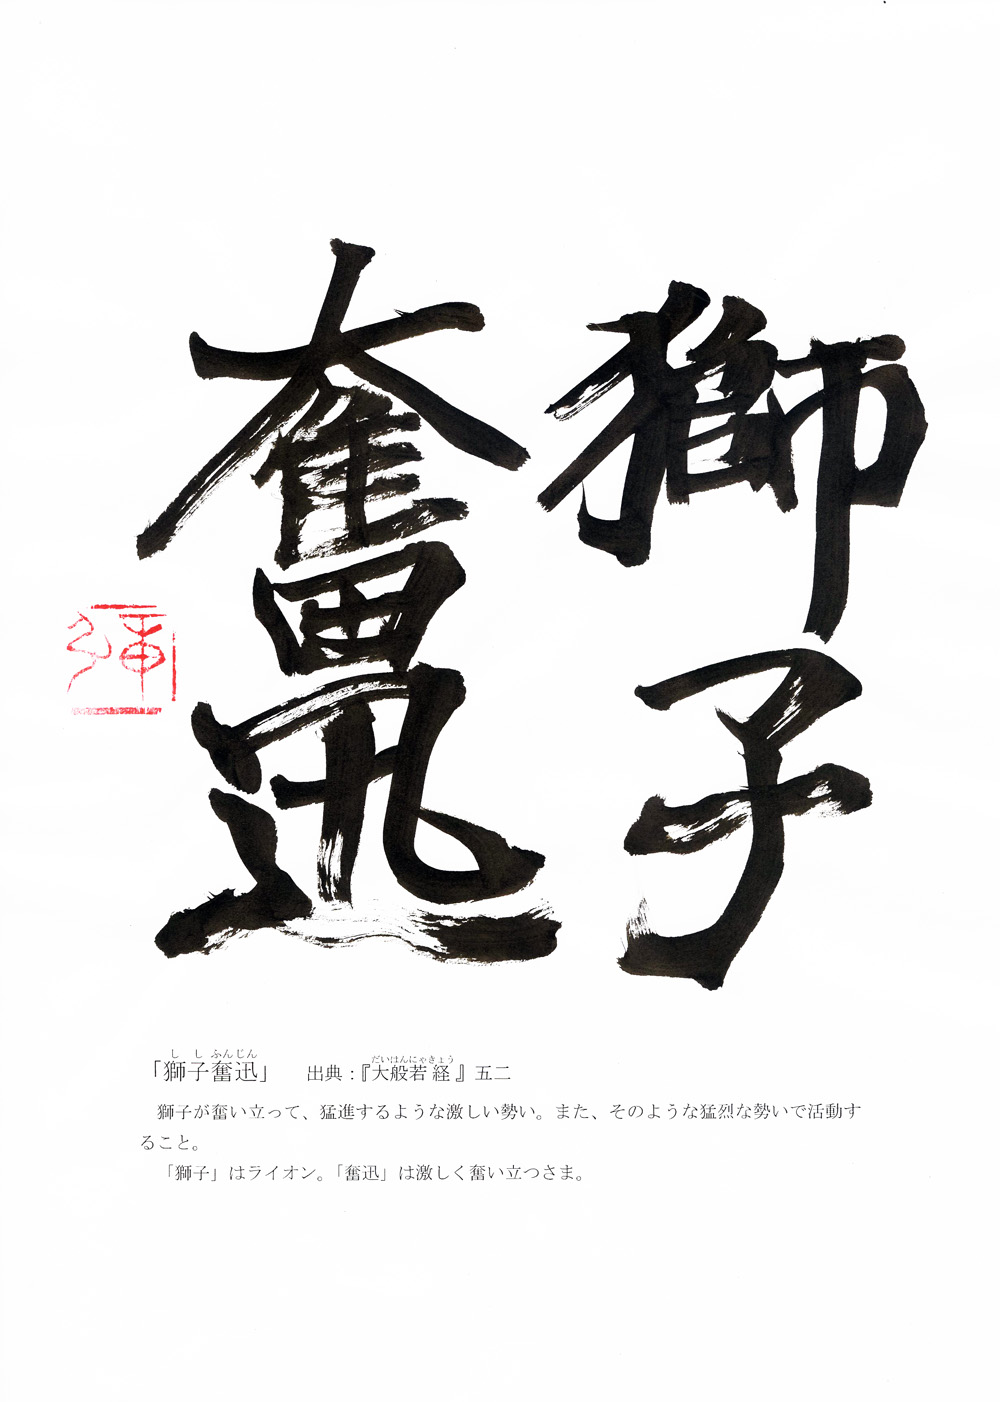 獅子
奮迅
しし ふんじん
「獅子奮迅」
だいはんにゃきょう
出典:『大般若経』五二
獅子が奮い立って、猛進するような激しい勢い。また、そのような猛烈な勢いで活動す
ること。
「獅子」はライオン。「奮迅」は激しく奮い立つさま。